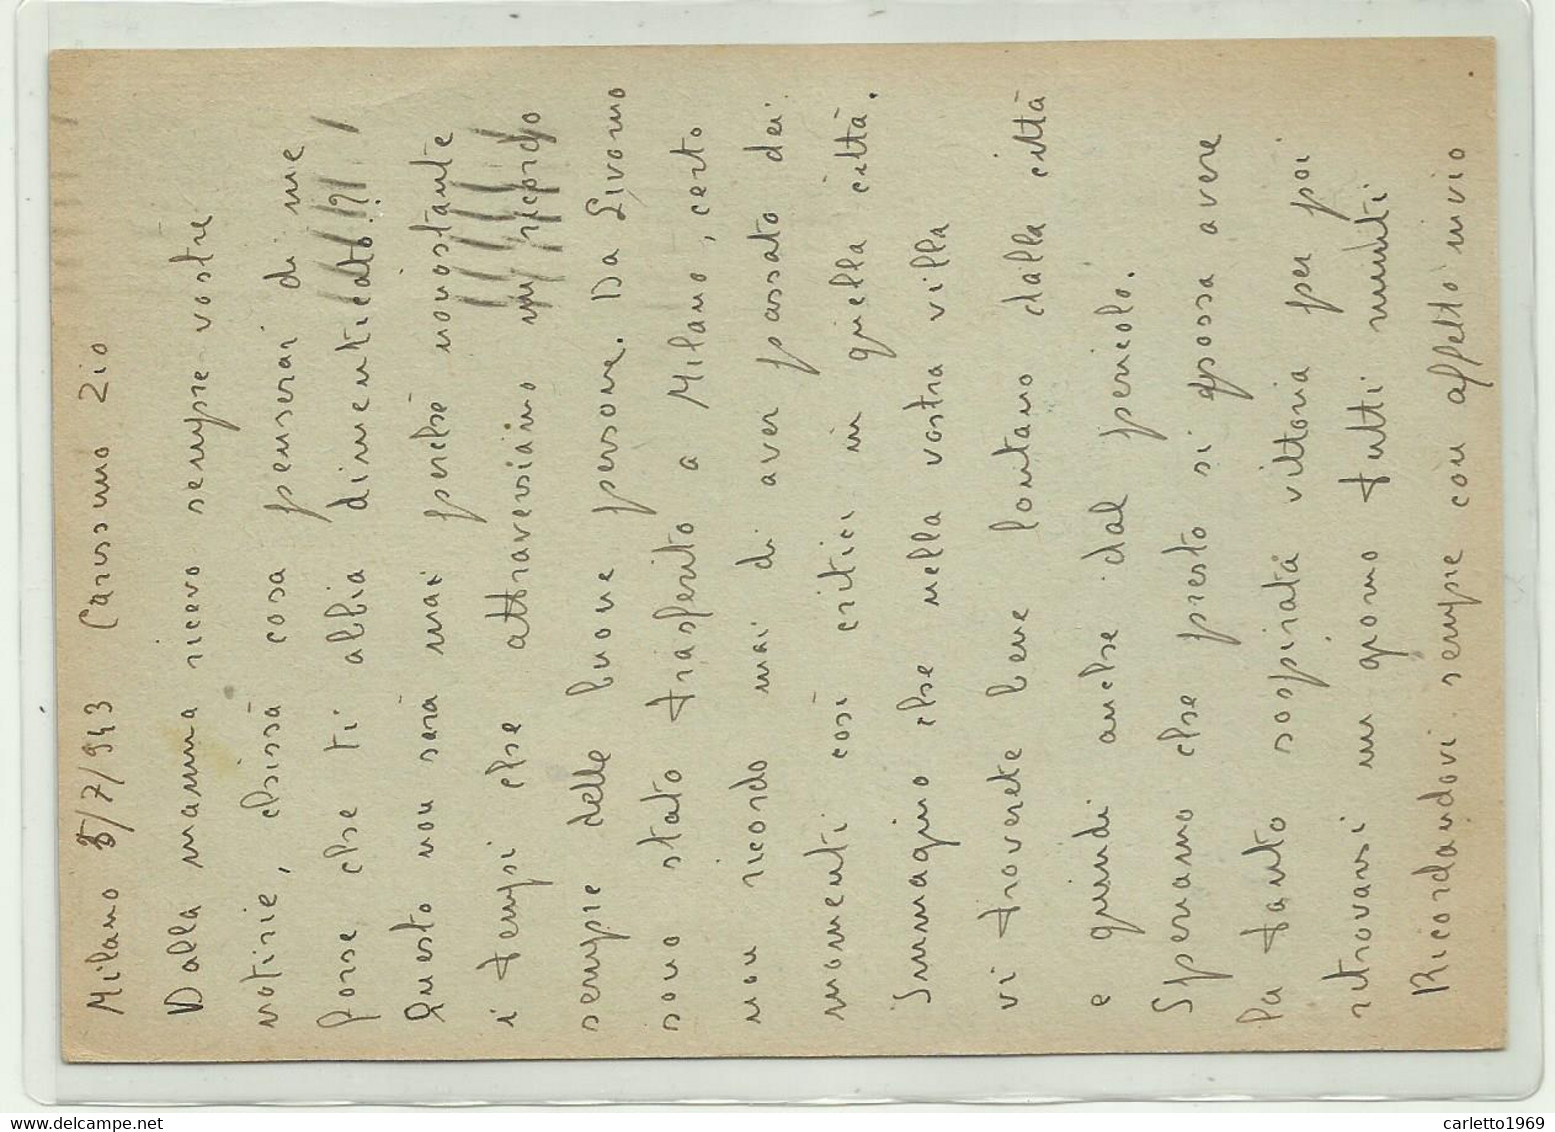 Milano 8/7/943 Carissimo Zio
Dalla mamma ricevo sempre vostre
notizie, chissà cosa penserai di me
forse che ti abbia dimenticato?!
Questo non sarà mai perché nonostante
i tempi che attraversiamo mi ricordo
sempre delle buone persone. Da Livorno
sono stato trasferito a Milano, certo
non ricordo mai di aver passato dei
momenti così critici in quella città.
Immagino che nella vostra villa
vi troverete bene lontano dalla città
e quindi anche dal pericolo.
Speriamo che presto si possa avere
la tanto sospirata vittoria per poi
ritrovarsi un giorno tutti uniti
Ricordandovi sempre con affetto invio
carletto1969